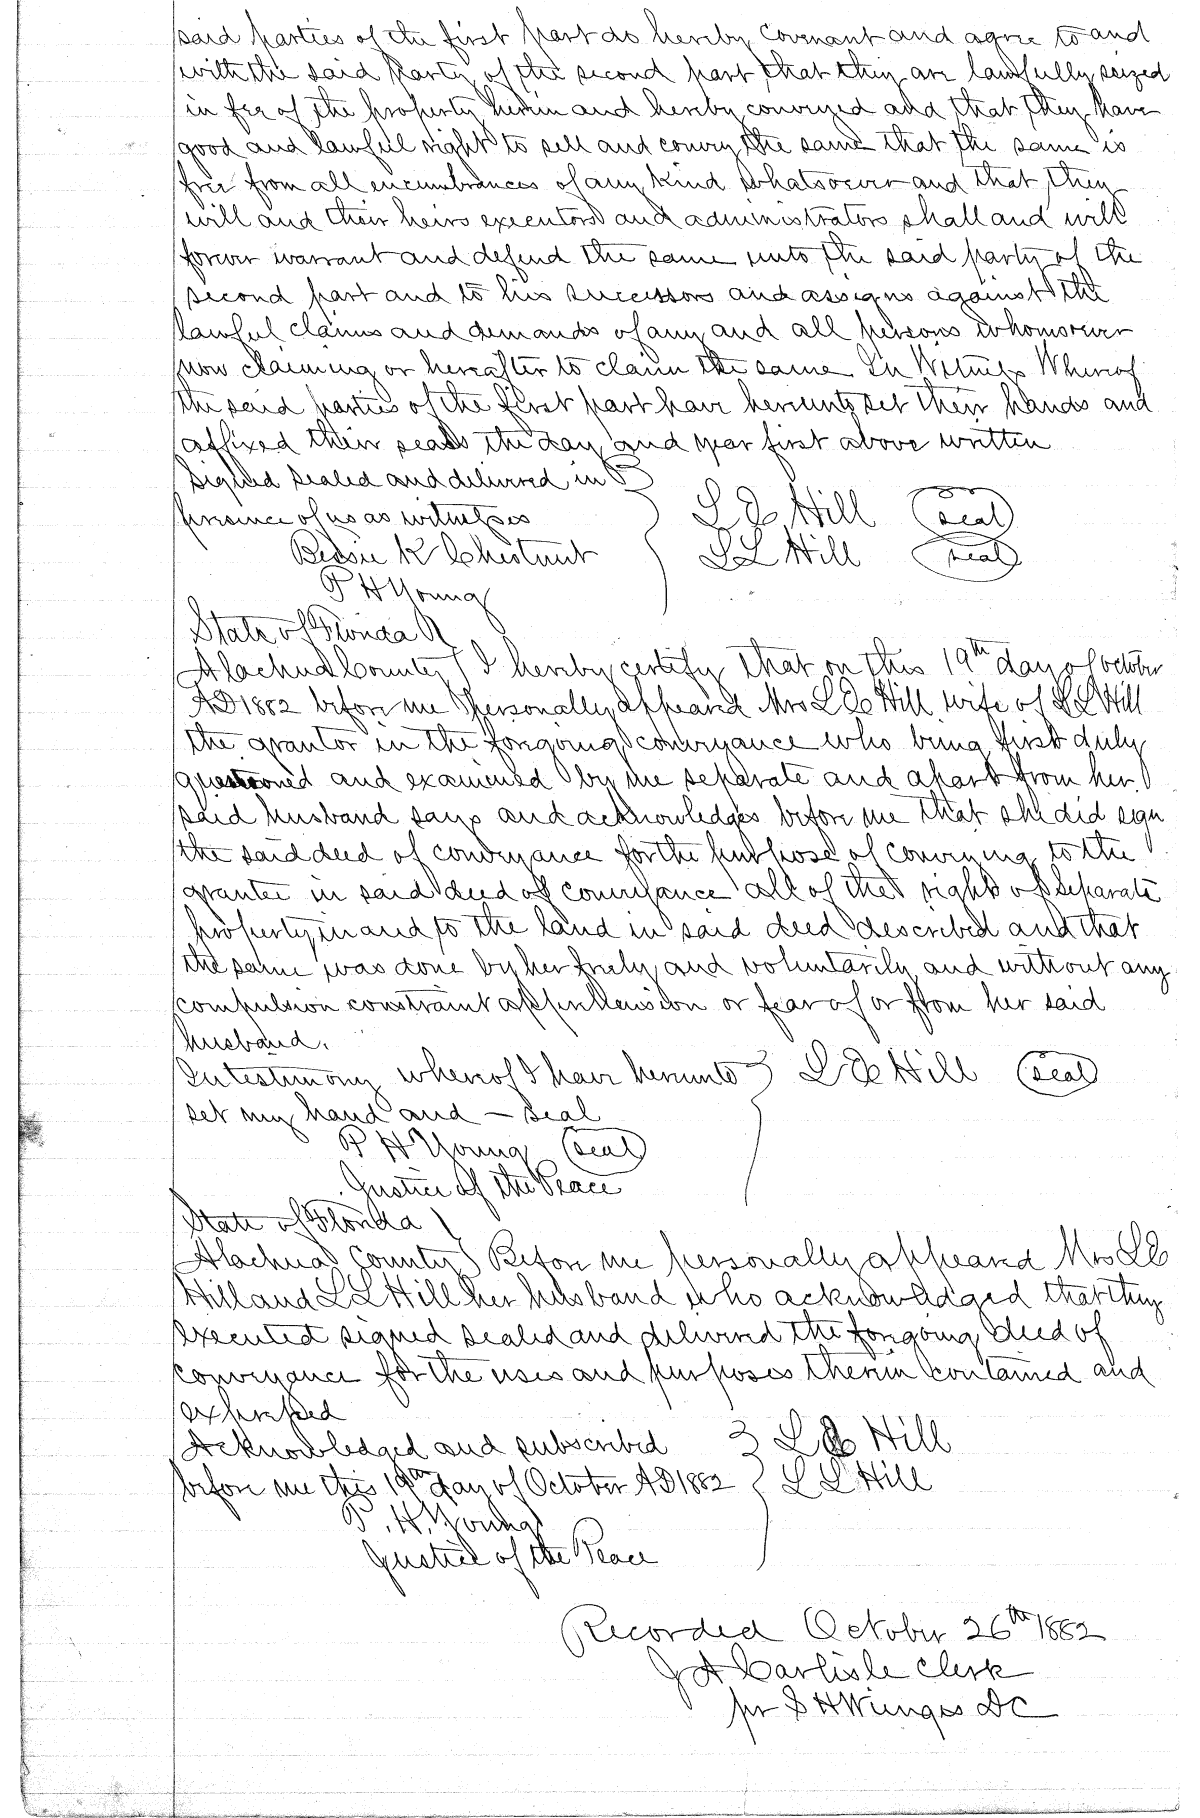 said parties of the first part do hereby covenant and agree to and
with the said Party of the second part that they are lawfully seized
in fee of the property herein and hereby conveyed and that they have
good and lawful right to sell and convey the same that the same is
free from all encumbrances of any kind whatsoever and that they
will and their heirs executors and administrators shall and will
forever warrant and defend the same unto the said party of the
second part and to his successors and assigns against the
lawful claims and demands of any and all persons whomsoever
now claiming or hereafter to claim the same In Witness Whereof
the said parties of the first part have hereunto set their hands and
affixed their seals the day and year first above written
Signed sealed and delivered in
presence of us as witnesses L E Hill (seal)
Bessie K Chestnut L L Hill (seal)
P H Young
State of Florida
Alachua County I hereby certify that on this 19th day of October
AD 1882 before me personally appeared Mrs L E Hill wife of L L Hill
the grantor in the foregoing conveyance who being first duly
questioned and examined by me separate and apart from her
said husband says and acknowledges before me that she did sign
the said deed of conveyance for the purpose of conveying to the
grantee in said deed of conveyance all of the right of separate
property in and to the land in said deed described and that
the same was done by her freely and voluntarily and without any
compulsion constraint apprehension or fear of or from her said
husband.
In testimony whereof I have hereunto L E Hill (seal)
set my hand and — seal
P H Young (seal)
Justice of the Peace
State of Florida
Alachua County Before me personally appeared Mrs L E
Hill and L L Hill her husband who acknowledged that they
executed signed sealed and delivered the foregoing deed of
conveyance for the uses and purposes therein contained and
expressed
Acknowledged and subscribed L E Hill
before me this 19th day of October AD 1882 L L Hill
P. H. Young
Justice of the Peace
Recorded October 26th 1882
J A Carlisle Clerk
pr S H Wienges DC